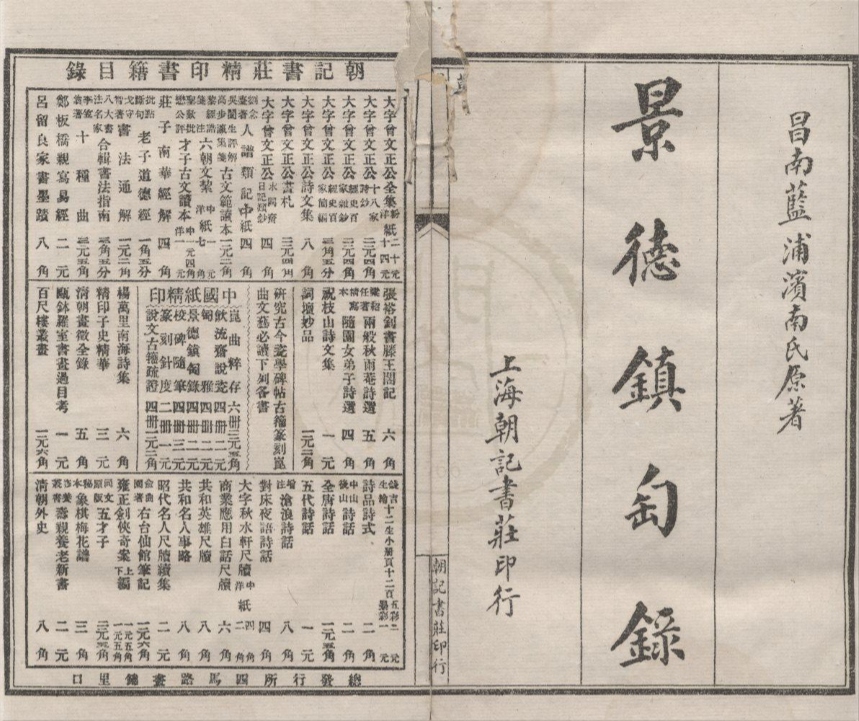 昌南藍浦濱南氏原著
景德鎮匋錄
上海朝記書莊印行
朝記書莊印行
朝記書莊精印書籍目錄
大字曾文正公全集
大字曾文正公十八家詩鈔 三元四角
大字曾文正公經史百家雜鈔 三元四角
大字曾文正公經史百家簡編
大字曾文正公詩文集 八角
大字曾文正公書札 三元四角
大字曾文正公日記 四角
人譜類記 中紙 四角
古文範讀本 二元二角
六朝文絜 中紙 洋紙
才子古文讀本
莊子南華經解 四角
老子道德經 一角五分
書法通解 一元二角
合輯書法指南
十種曲
鄭板橋親寫易經 二元
呂留良家書墨蹟 八角
張裕釗書滕王閣記 六角
兩般秋雨菴詩選 五角
隨園女弟子詩選 四角
祝枝山詩文集 一元
詞壇妙品 一元二角
研究古今瓷學碑帖古籀篆刻崑
曲文藝必讀下列各書
中國紙精印
崑曲粹存 六冊
飲流齋說瓷 四冊 二元
匋雅 四冊 二元
景德鎮匋錄 四冊 二元
校碑隨筆 四冊 三元
篆刻針度 二冊 一元
說文古籀疏證 四冊
楊萬里南海詩集 六角
精印子史精華 三元
清朝畫徵全錄 五角
甌鉢羅室書畫過目考 一元
百尺樓叢畫 一元六角
十二生小冊頁十二頁
詩品詩式 二角
詩話 二角
全唐詩話 一元五角
五代詩話 一元
滄浪詩話 八角
對床夜語詩話 四角
大字秋水軒尺牘 中紙 洋紙
商業應用白話尺牘 六角
共和英雄尺牘 八角
共和名人事略 八角
昭代名人尺牘續集 二元
右台仙館筆記 一元六角
雍正劍俠奇案 上編 下編
五才子
象棋梅花譜 三角
壽親養老新書 二元
清朝外史 八角
總發行所四馬路畫錦里口